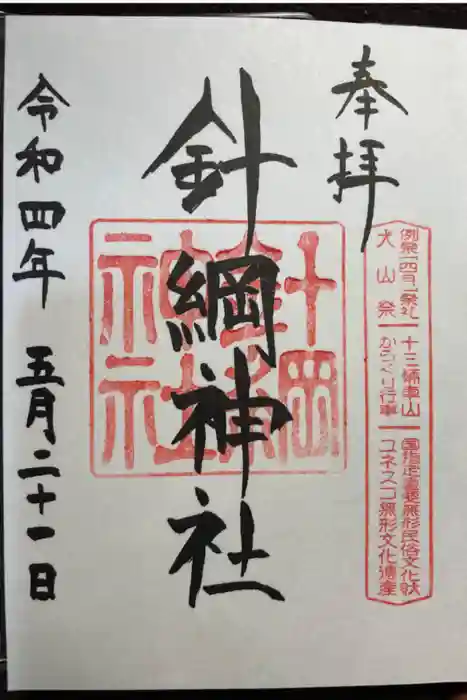 奉拝
例祭「四月」祭礼 十三輌車山 国指定重要無形民俗文化財
犬山祭 からくり行事 ユネスコ無形文化遺産
針綱神社
令和四年 五月二十一日